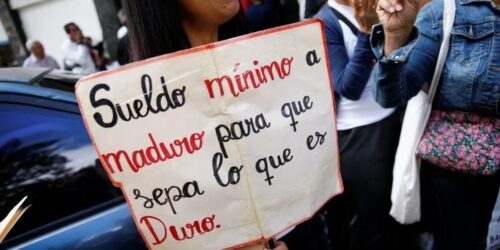 Sueldo mínimo a
maduro para que
sepa lo que es
Duro.